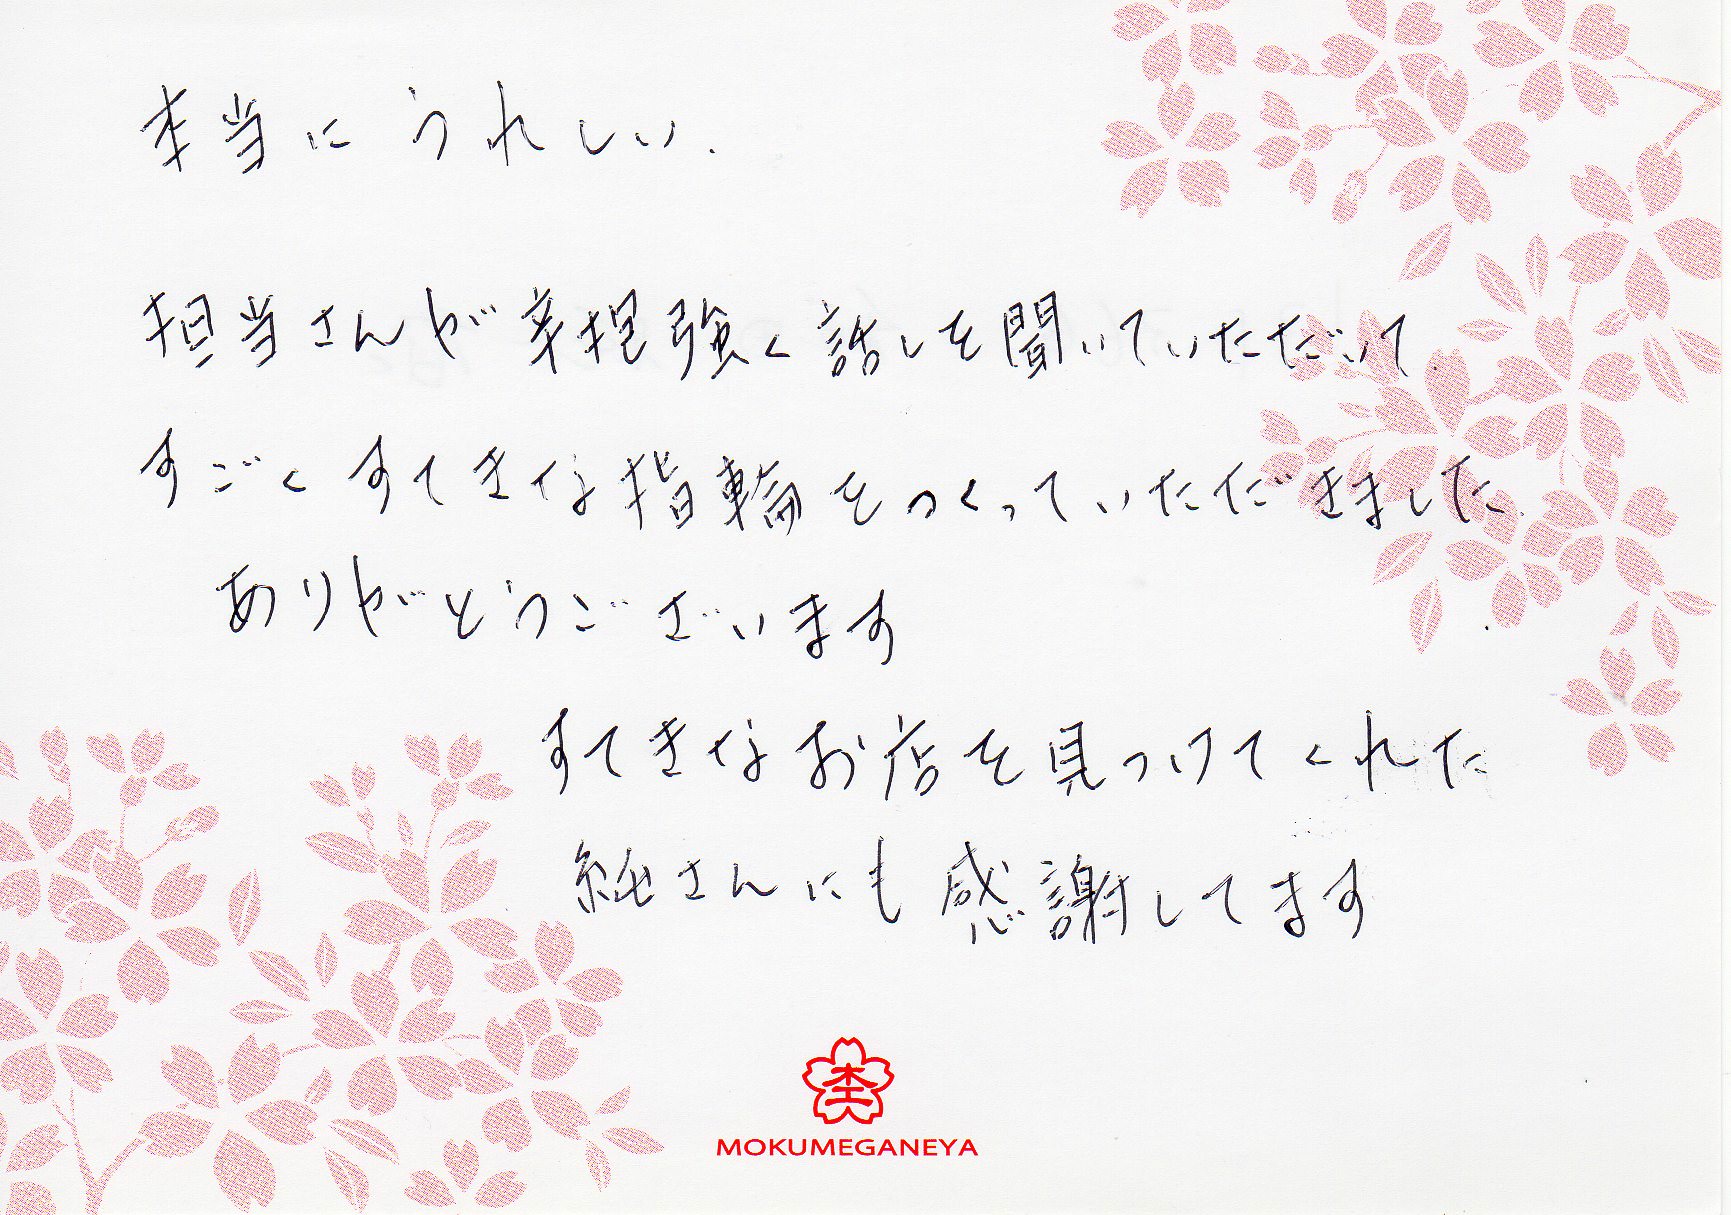 本当にうれしい.
担当さんが辛抱強く話しを聞いていただいて
すごくすてきな指輪をつくっていただきました
ありがとうございます
すてきなお店を見つけてくれた
純さんにも感謝してます
杢
MOKUMEGANEYA